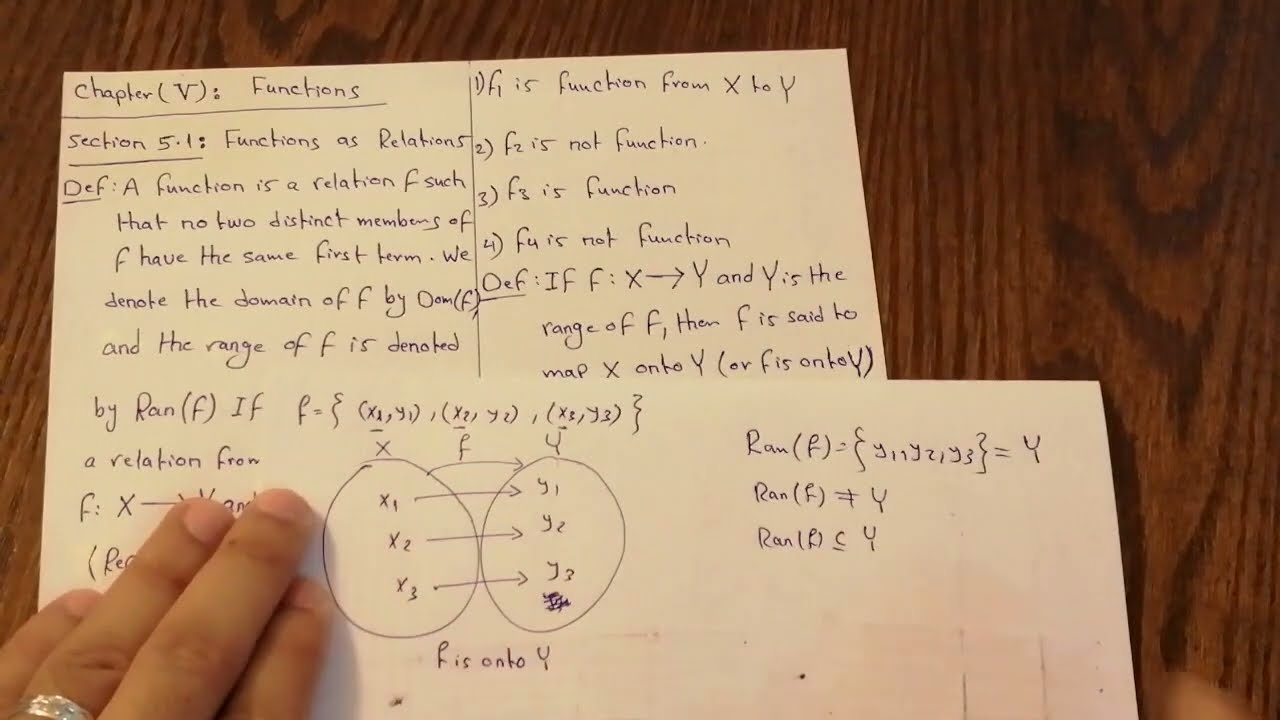 Chapter (V): Functions
Section 5.1: Functions as Relations
Def: A function is a relation f such
that no two distinct members of
f have the same first term. We
denote the domain of f by Dom(f)
and the range of f is denoted
by Ran(f) If
a relation from
f: X → Y and
1) f₁ is function from X to Y
2) f₂ is not function.
3) f₃ is function
4) f₄ is not function
Def: If f: X → Y and Y is the
range of f, then f is said to
map X onto Y (or f is onto Y)
f = { (x₁, y₁), (x₂, y₂), (x₃, y₃) }
X f Y
x₁ y₁
x₂ y₂
x₃ y₃
f is onto Y
Ran(f) = {y₁, y₂, y₃} = Y
Ran(f) ≠ Y
Ran(f) ⊆ Y